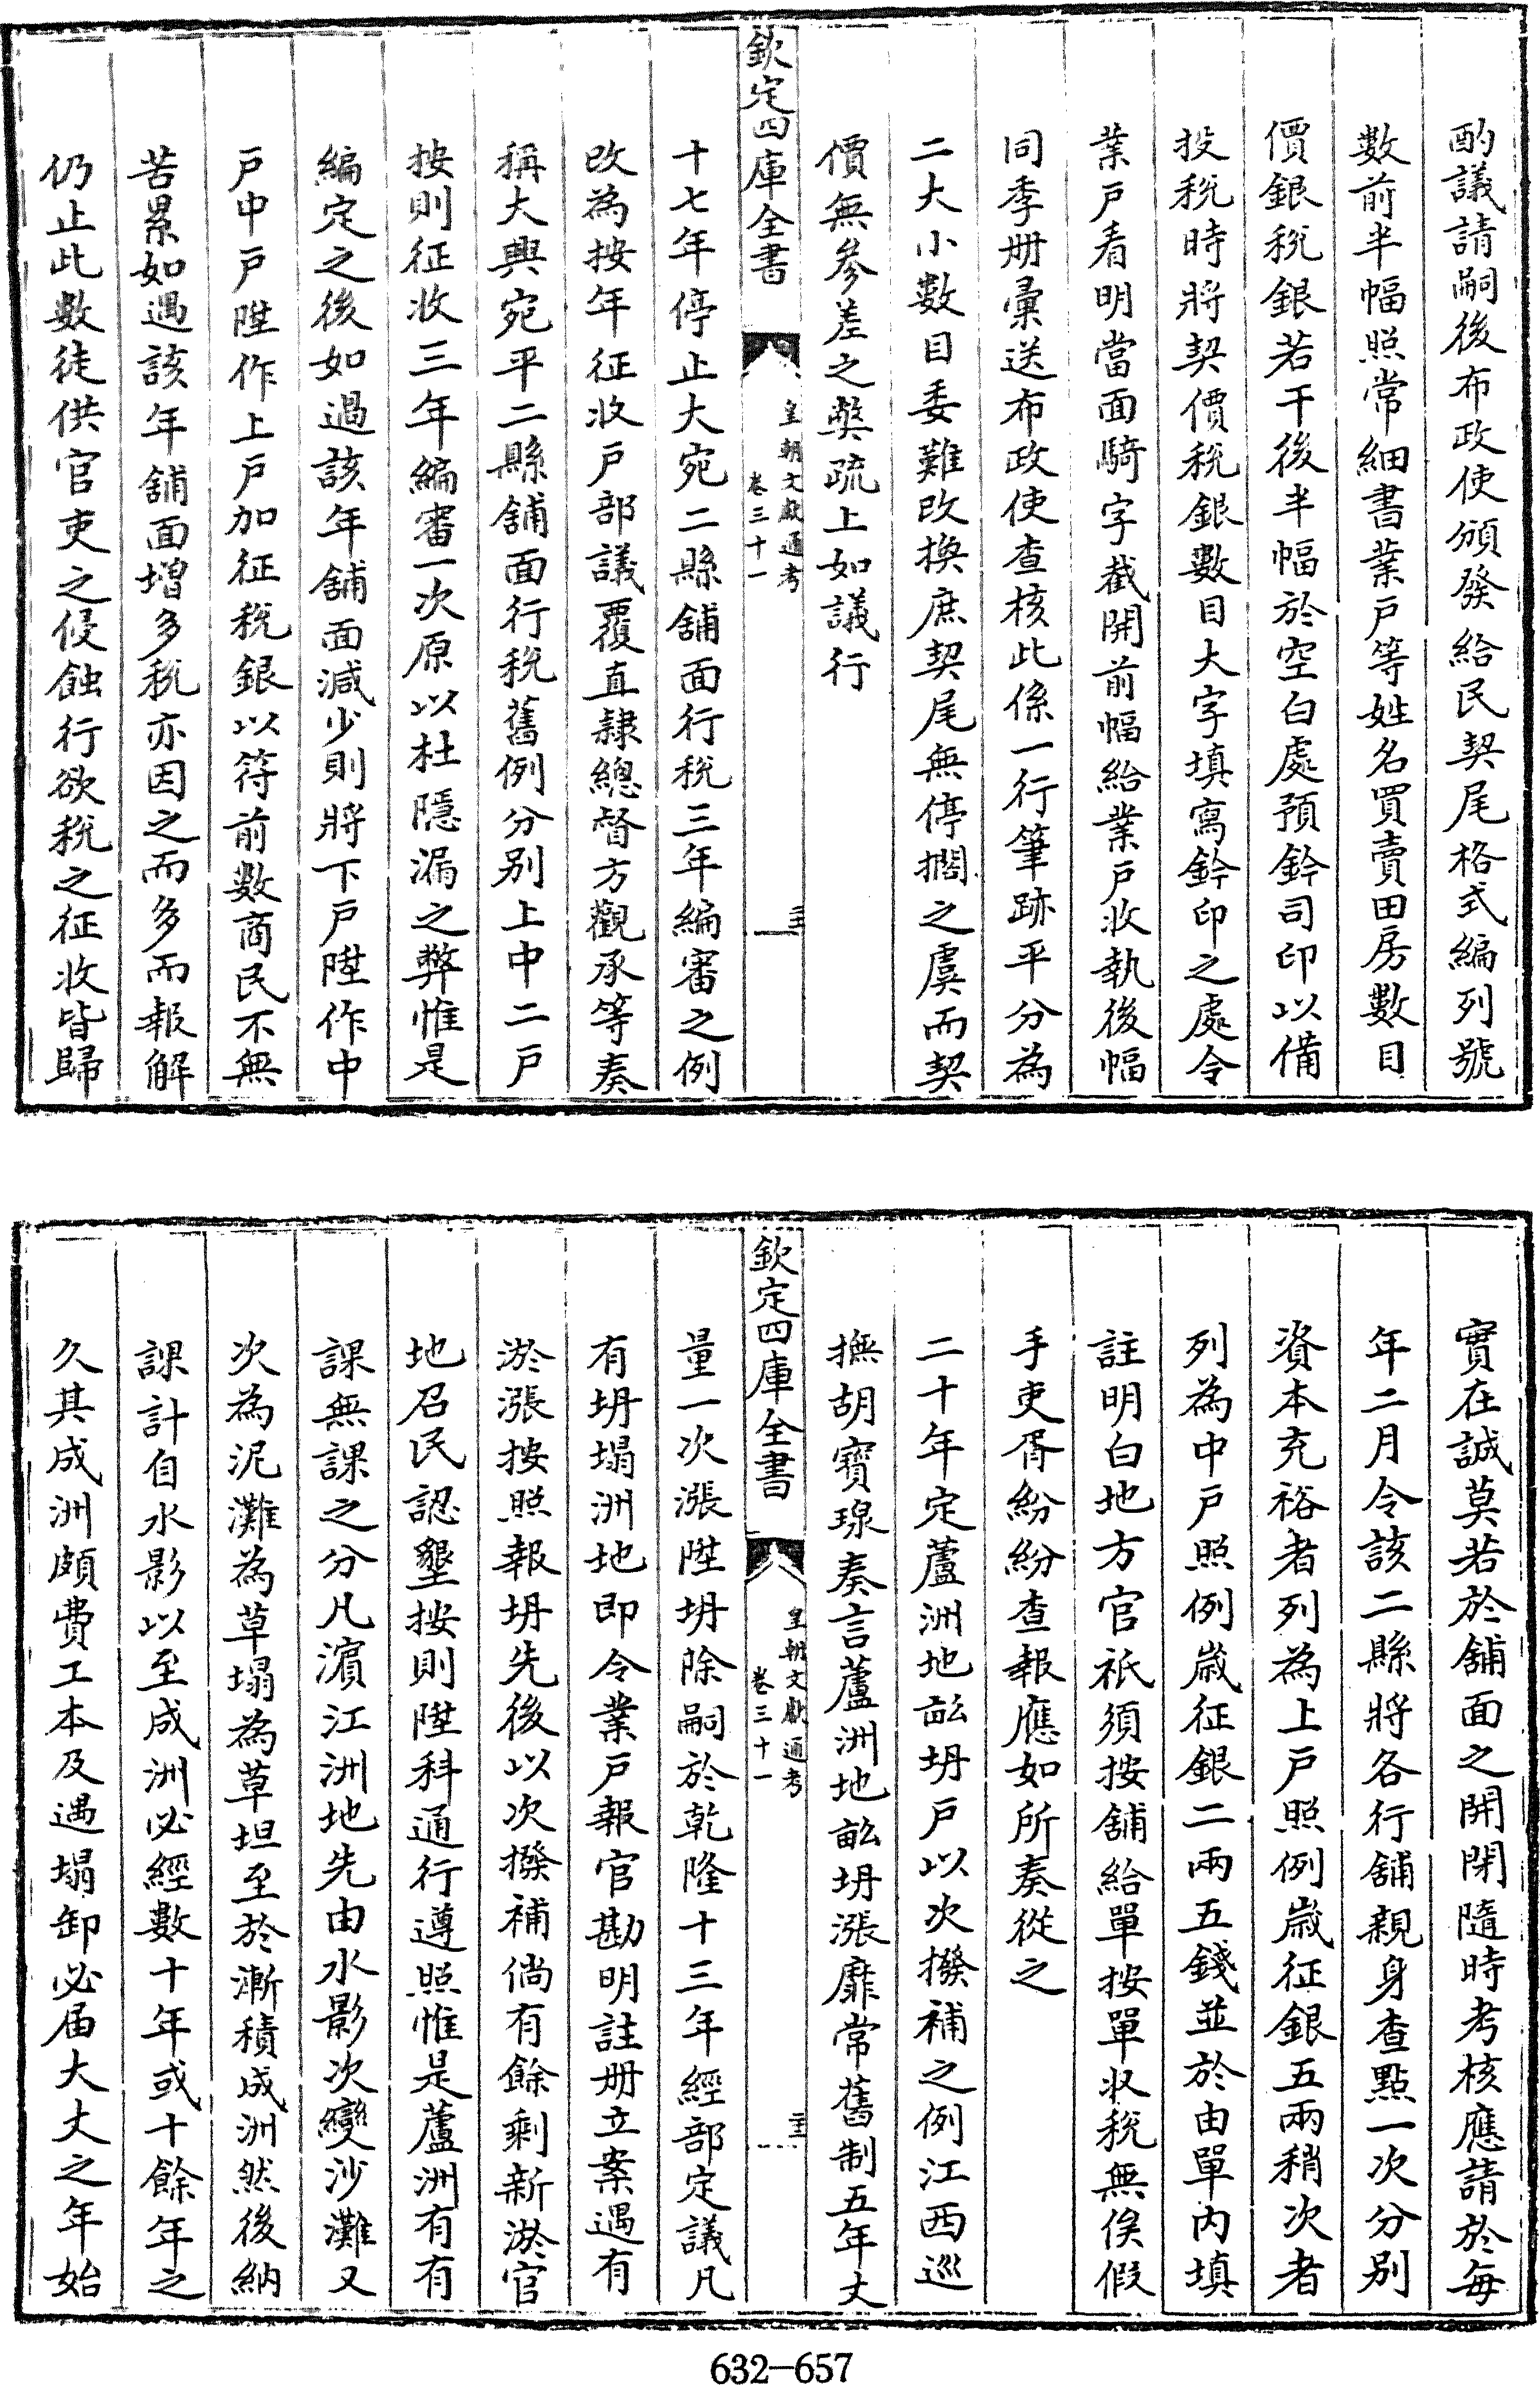 酌議請嗣後布政使頒發給民契尾格式編列號
數前半幅照常細書業戸等姓名買賣田房數目
價銀稅銀若干後半幅於空白處預鈐司印以備
投稅時將契價稅銀數目大字填寫鈐印之處令
業戸看明當面騎字截開前幅給業戸收執後幅
同季冊彚送布政使查核此係一行筆跡平分為
二大小數目委難改換庶契尾無停擱之虞而契
價無參差之獘疏上如議行
欽定四庫全書
皇朝文獻通考
卷三十一
十七年停止大宛二縣舖面行稅三年編審之例
改為按年征收戸部議覆直隷總督方觀承等奏
稱大興宛平二縣舖面行稅舊例分別上中二戸
按則征收三年編審一次原以杜隱漏之弊惟是
編定之後如過該年舖面減少則將下戸陞作中
戸中戸陞作上戸加征稅銀以符前數商民不無
苦累如遇該年舖面增多稅亦因之而多而報解
仍止此數徒供官吏之侵蝕行欲稅之征收皆歸
實在誠莫若於舖面之開閉隨時考核應請於每
年二月令該二縣將各行舖親身查點一次分別
資本充裕者列為上戸照例嵗征銀五兩稍次者
列為中戸照例嵗征銀二兩五錢並於由單内填
註明白地方官祇須按舖給單按單收稅無俟假
手吏胥紛紛查報應如所奏從之
二十年定蘆洲地畝坍戸以次撥補之例江西巡
撫胡寳瑔奏言蘆洲地畝坍漲靡常舊制五年丈
欽定四庫全書
皇朝文獻通考
卷三十一
量一次漲陞坍除嗣於乾隆十三年經部定議凡
有坍塌洲地即令業戸報官勘明註冊立案遇有
淤漲按照報坍先後以次撥補倘有餘剩新淤官
地召民認墾按則陞科通行遵照惟是蘆洲有有
課無課之分凡濵江洲地先由水影次變沙灘又
次為泥灘為草塌為草坦至於漸積成洲然後納
課計自水影以至成洲必經數十年或十餘年之
久其成洲頗費工本及遇塌卸必届大丈之年始
632-657